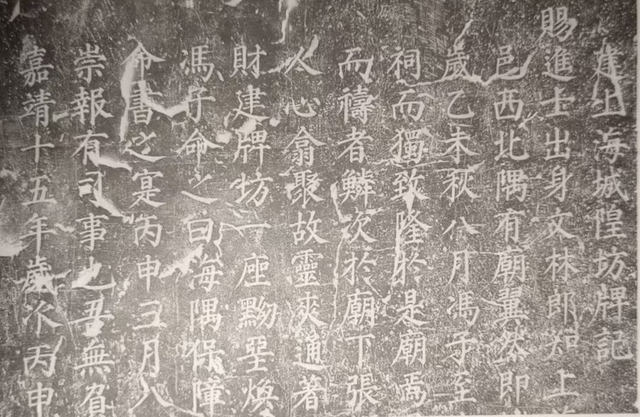 建上海城隍坊牌記
賜進士出身文林郎知上
邑西北隅有廟翼然即
歲乙未秋八月馮子至
祠而獨致隆於是廟焉
而禱者鱗次於廟下張
人心翕聚故靈爽通著
財建牌坊一座黝堊煥
馮子命之曰海隅保障
命書之寔丙申三月八
崇報有司事也吾無負
嘉靖十五年歲次丙申